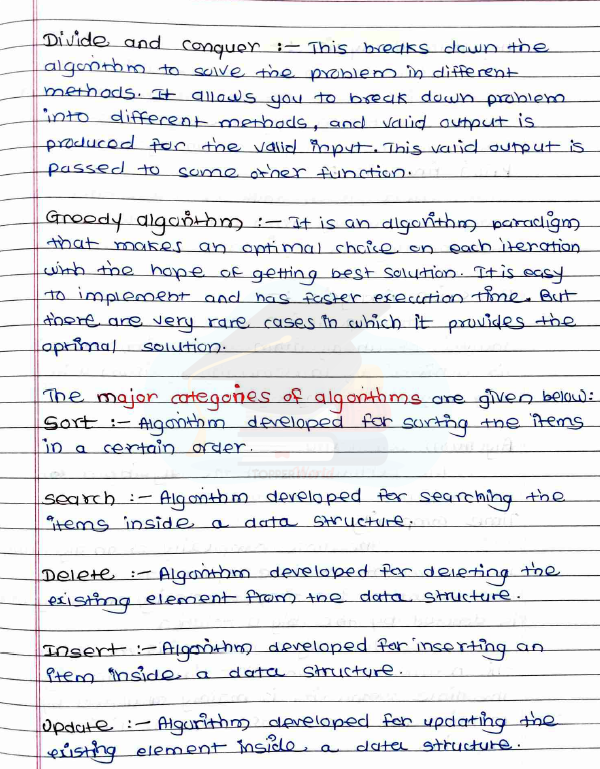 Divide and conquer :- This breaks down the
algorithm to solve the problem in different
methods. It allows you to break down problem
into different methods, and valid output is
produced for the valid input. This valid output is
passed to some other function.
Greedy algorithm :- It is an algorithm paradigm
that makes an optimal choice on each iteration
with the hope of getting best solution. It is easy
to implement and has faster execution time. But
there are very rare cases in which it provides the
optimal solution.
The major categories of algorithms are given below:
Sort :- Algorithm developed for sorting the items
in a certain order.
Search :- Algorithm developed for searching the
items inside a data structure.
Delete :- Algorithm developed for deleting the
existing element from the data structure.
Insert :- Algorithm developed for inserting an
item inside a data structure.
Update :- Algorithm developed for updating the
existing element inside a data structure.